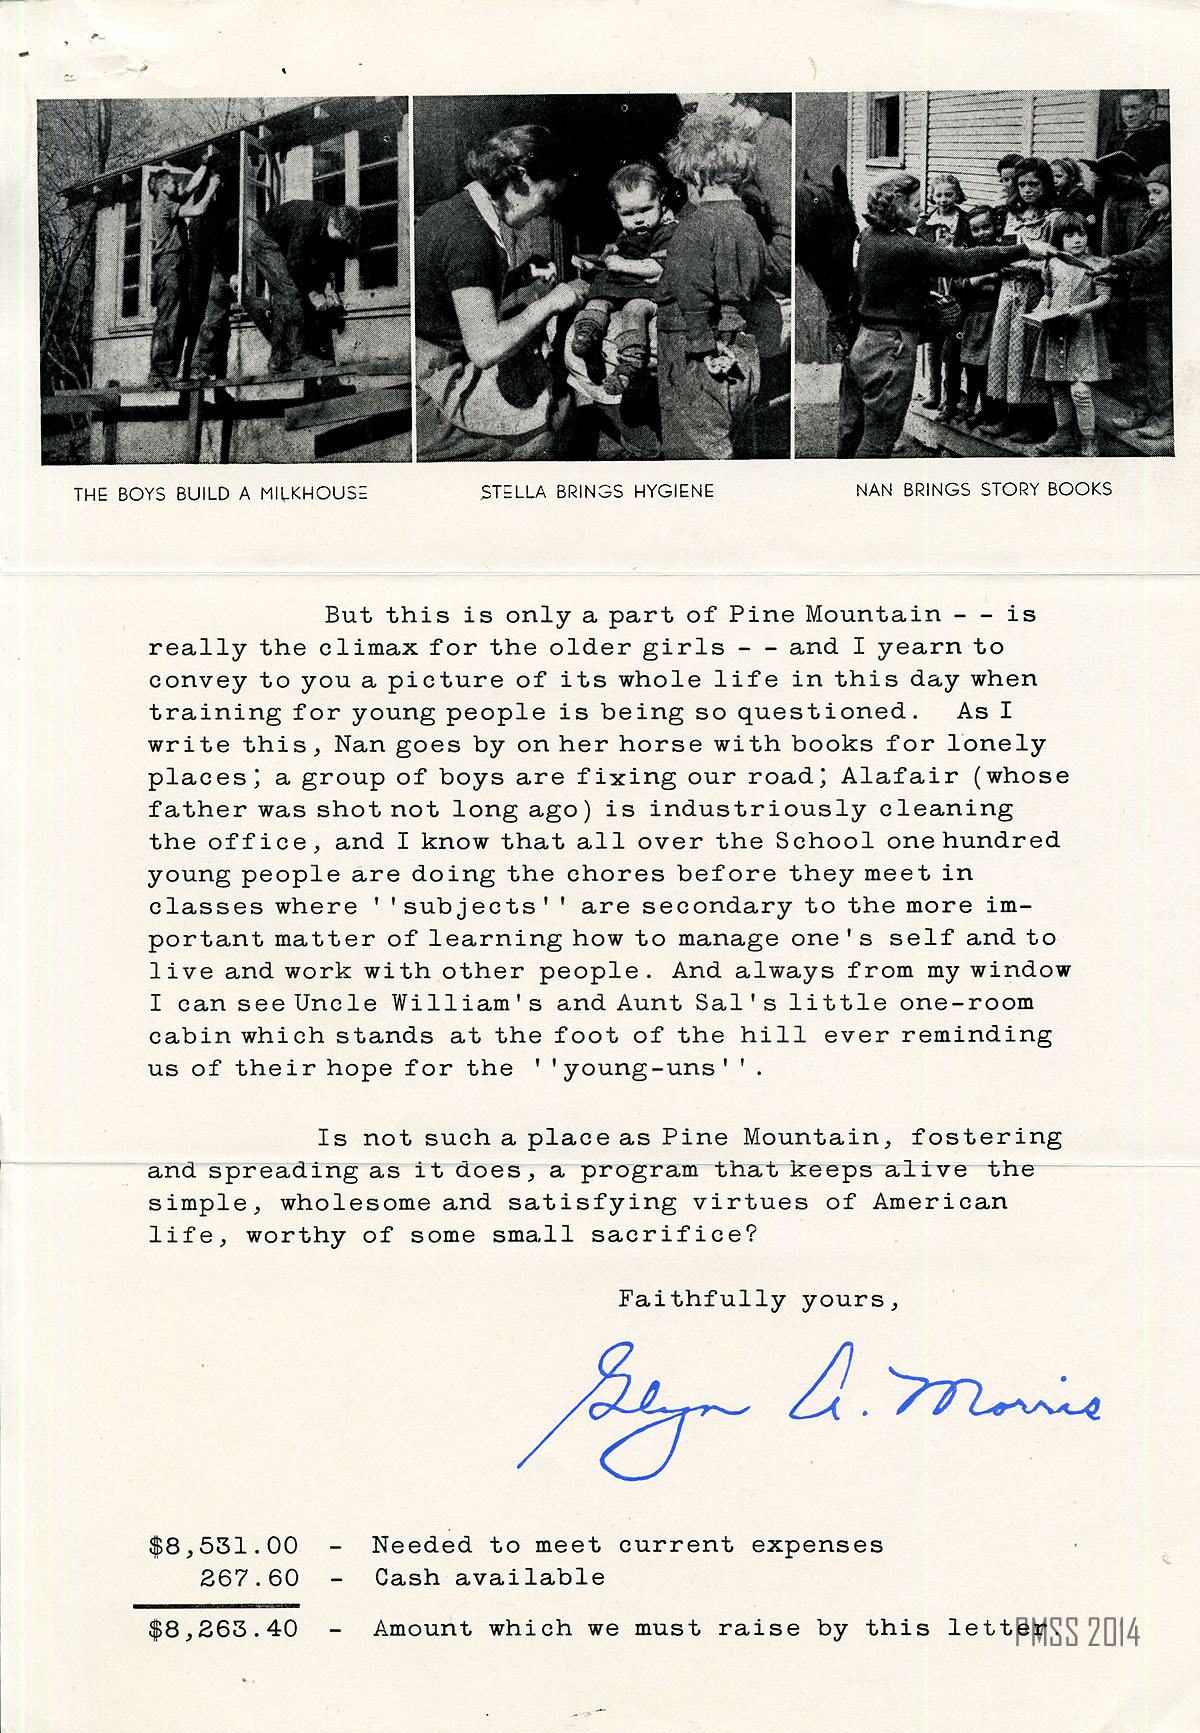 THE BOYS BUILD A MILKHOUSE
STELLA BRINGS HYGIENE
NAN BRINGS STORY BOOKS
But this is only a part of Pine Mountain - - is
really the climax for the older girls - - and I yearn to
convey to you a picture of its whole life in this day when
training for young people is being so questioned. As I
write this, Nan goes by on her horse with books for lonely
places; a group of boys are fixing our road; Alafair (whose
father was shot not long ago) is industriously cleaning
the office, and I know that all over the School one hundred
young people are doing the chores before they meet in
classes where ''subjects'' are secondary to the more im-
portant matter of learning how to manage one's self and to
live and work with other people. And always from my window
I can see Uncle William's and Aunt Sal's little one-room
cabin which stands at the foot of the hill ever reminding
us of their hope for the ''young-uns''.
Is not such a place as Pine Mountain, fostering
and spreading as it does, a program that keeps alive the
simple, wholesome and satisfying virtues of American
life, worthy of some small sacrifice?
Faithfully yours,
Glyn A. Morris
$8,531.00 - Needed to meet current expenses
267.60 - Cash available
$8,263.40 - Amount which we must raise by this letter.
PMSS 2014